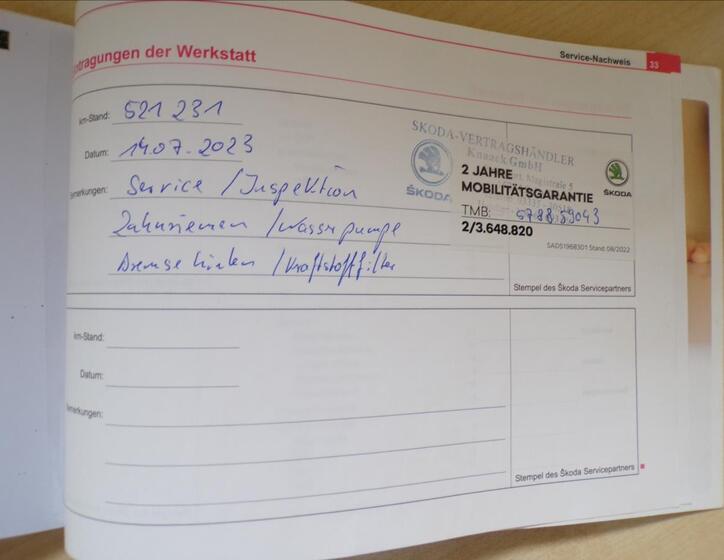 ntragungen der Werkstatt
Service-Nachweis 33
km-Stand: 521 231
Datum: 14.07.2023
emerkungen: Service / Inspektion
Zahnriemen / Wasserpumpe
Bremse hinten / Kraftstofffilter
SKODA-VERTRAGSHÄNDLER
Knaack GmbH
Magistrale 5
ŠKODA
2 JAHRE
MOBILITÄTSGARANTIE
ŠKODA
TMB:
2/3.648.820
SAD51968301 Stand: 08/2022
Stempel des Škoda Servicepartners
km-Stand:
Datum:
emerkungen:
Stempel des Škoda Servicepartners